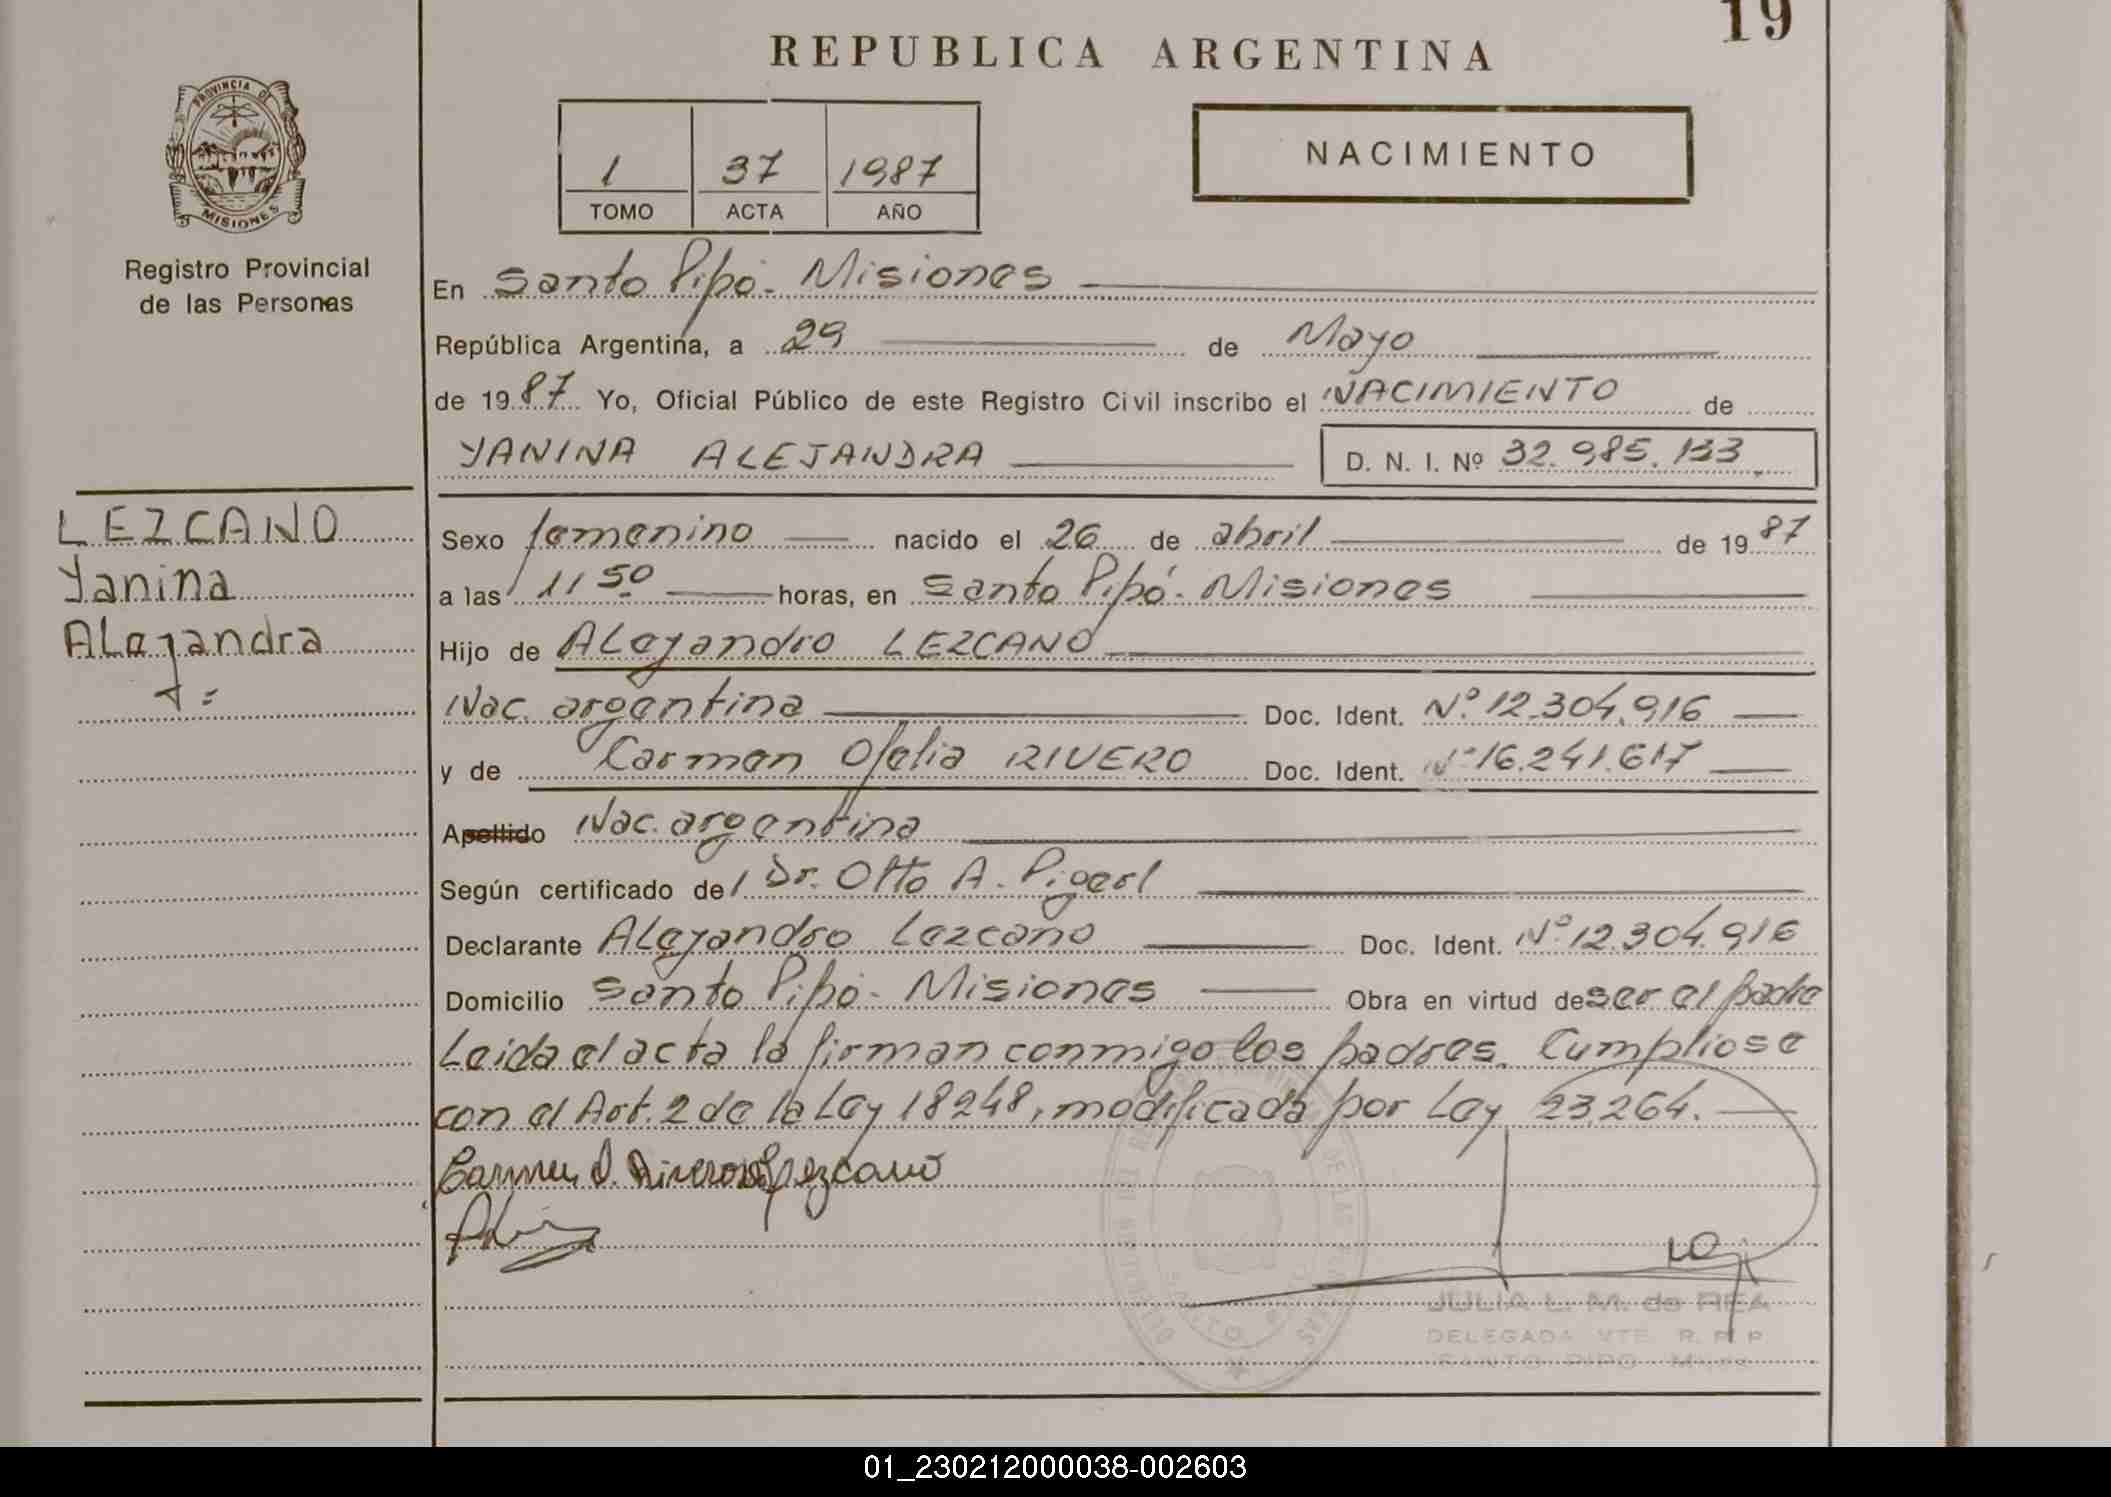 19
REPUBLICA ARGENTINA
PROVINCIA DE
MISIONES
1 37 1987
TOMO ACTA AÑO
NACIMIENTO
Registro Provincial
de las Personas
En Santo Pipó - Misiones
República Argentina, a 29 de Mayo
de 1987 Yo, Oficial Público de este Registro Civil inscribo el NACIMIENTO de
YANINA ALEJANDRA D. N. I. Nº 32.985.133
LEZCANO
Yanina
ALejandra
Sexo femenino nacido el 26 de abril de 1987
a las 11 50 horas, en Santo Pipó - Misiones
Hijo de ALejandro LEZCANO
Nac. argentina Doc. Ident. Nº 12.304.916
y de Carmen Ofelia RIVERO Doc. Ident. Nº 16.241.617
Apellido Nac. argentina
Según certificado de/ Dr. Otto A. Pigerl
Declarante ALejandro Lezcano Doc. Ident. Nº 12.304.916
Domicilio Santo Pipó - Misiones Obra en virtud de ser el padre
Leida el acta la firman conmigo los padres. Cumpliose
con el Art. 2 de la Ley 18248, modificada por Ley 23.264.
Carmen O. Rivero de Lezcano
JULIA L. M. de REA
DELEGADA VTE. R. P. P.
SANTO PIPO - Mnes
01_230212000038-002603